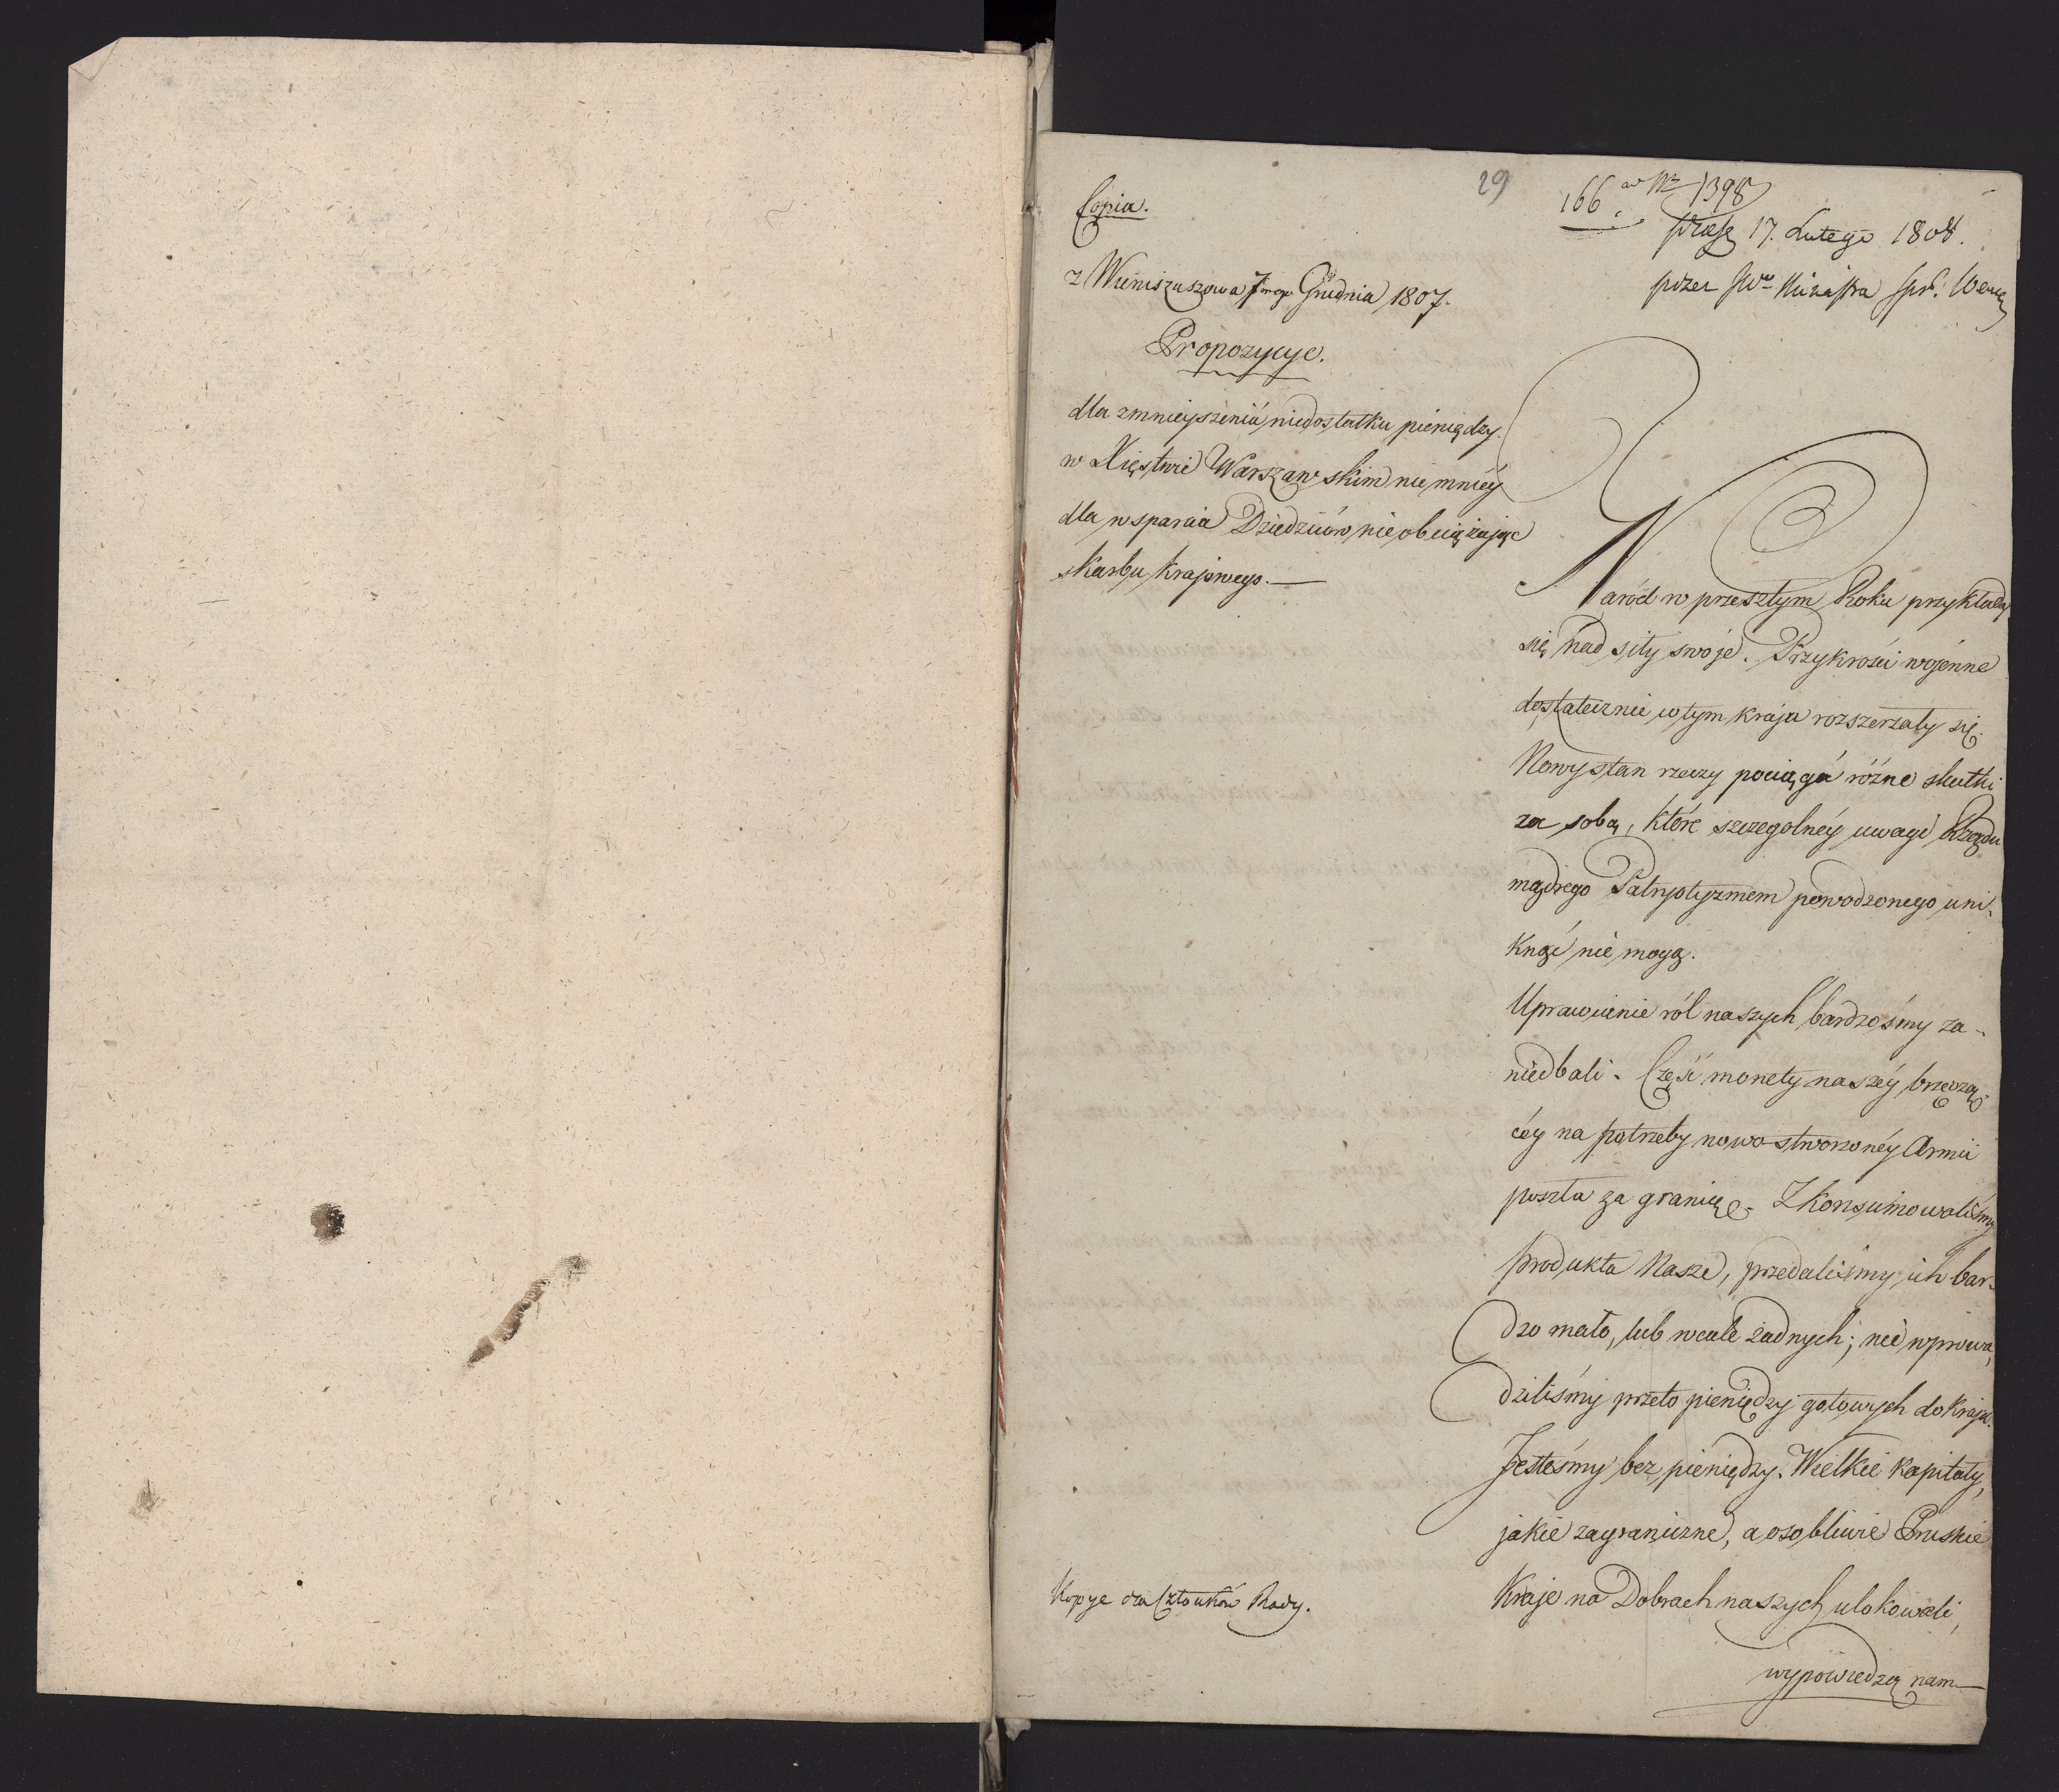 29
166 ad Nr 1398
17. Lutego 1808.
przez JW Ministra Spr. Wewn
Copia.
z Wieniszuszowa 7mego Grudnia 1807.
Propozycye.
dla zmnieyszenia niedostatku pieniędzy.
w Xięstwie Warszawskim nie mniéy
dla wsparcia Dziedziców nie obciążając
skarbu krajowego. —
Naród w przeszłym Roku przykładał
się nad siły swoje. Przykrości wojenne
dostatecznie w tym kraju rozszerzały się.
Nowy stan rzeczy pociąga różne skutki
za sobą, które szczegolnéy uwagi Rządu
mądrego Patryotyzmem powodzonego uni-
knąć nie mogą.
Uprawienie ról naszych bardzośmy za-
niedbali. Część monety naszéy brzęczą-
céy na potrzeby nowo stworzonéy Armii
poszła za granicę. Zkonsumowaliśmy
produkta Nasze, przedaliśmy ich bar-
dzo mało, lub wcale żadnych; nie wprowa-
dziliśmy przeto pieniędzy gotowych do kraju.
Jesteśmy bez pieniędzy. Wielkie kapitały,
jakie zagraniczne, a osobliwie Pruskie
Kraje na Dobrach naszych ulokowali,
wypowiedzą nam
Kopye dla Członków Rady.